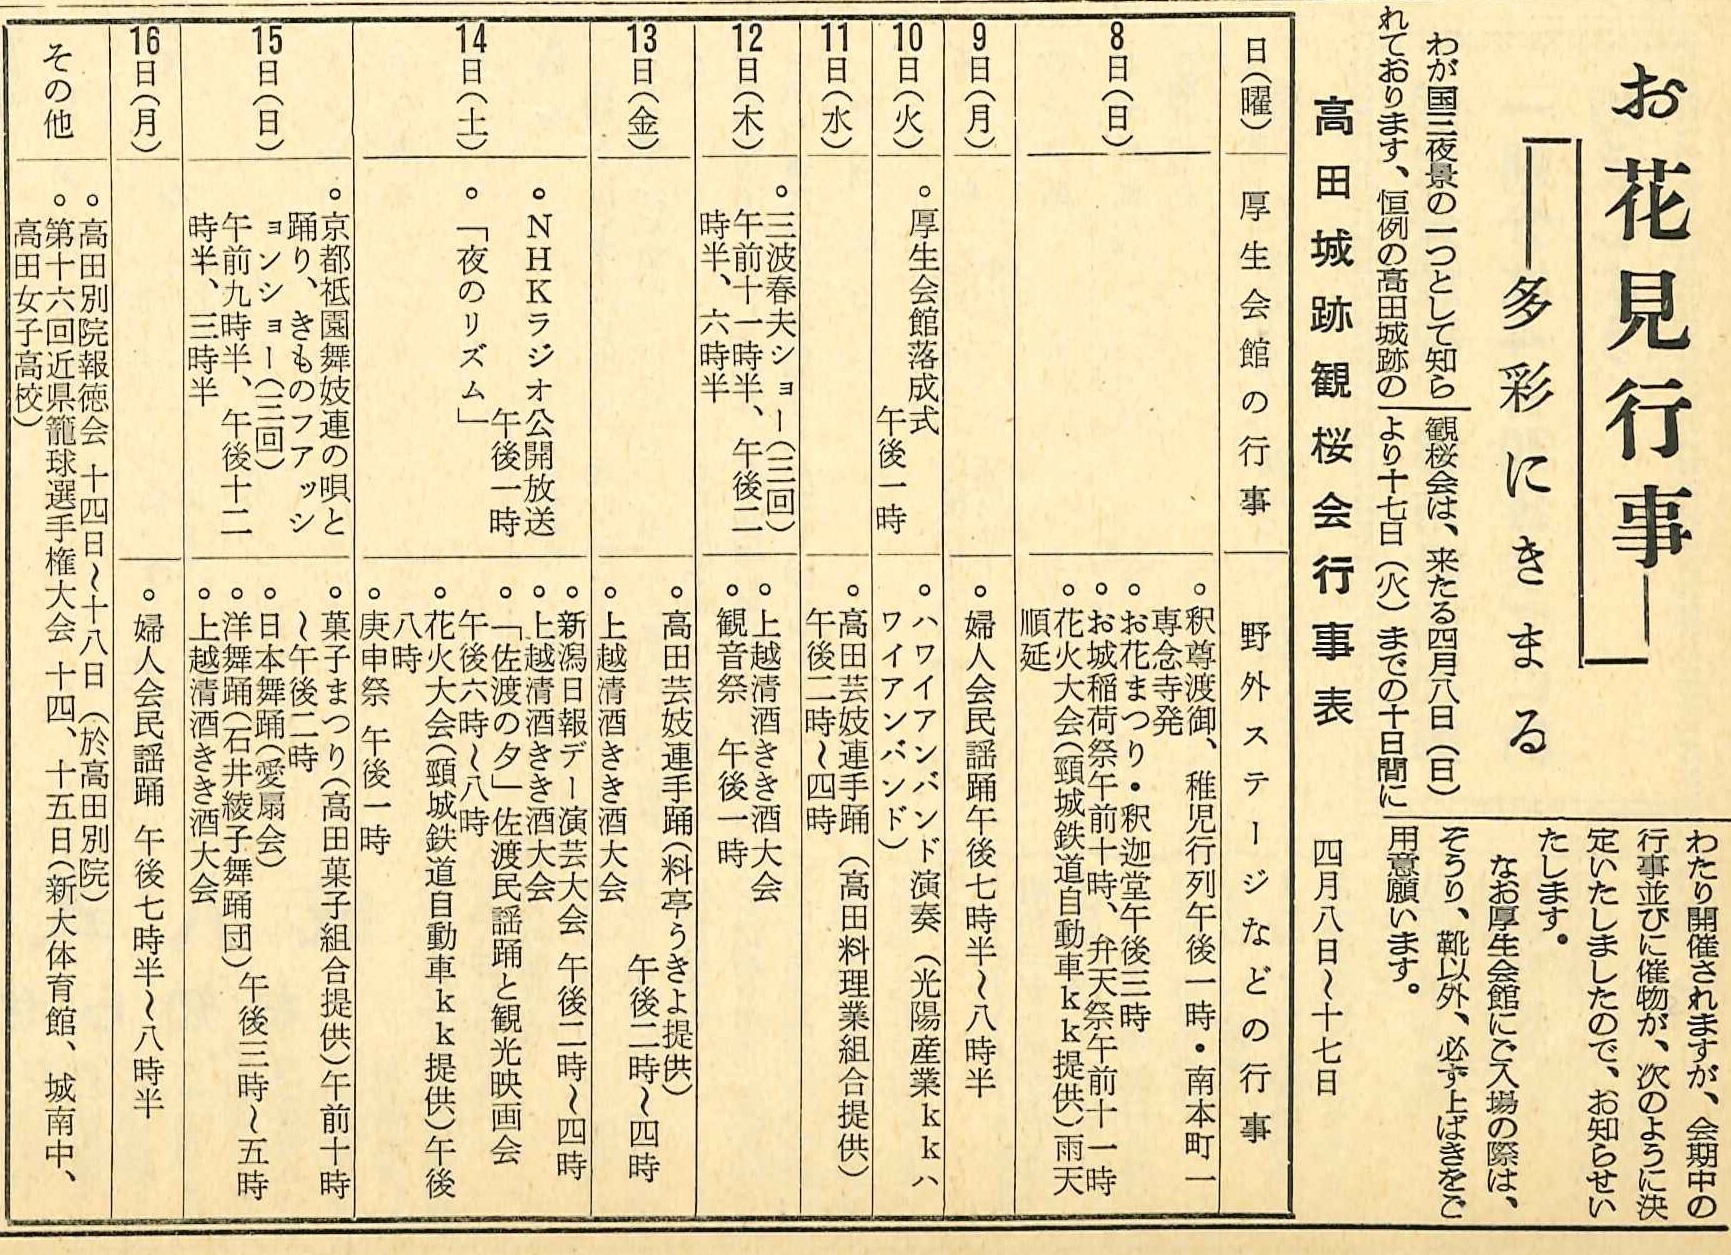 お花見行事
―多彩にきまる
わが国三夜景の一つとして知ら
れております、恒例の高田城跡の
観桜会は、来たる四月八日(日)
より十七日(火)までの十日間に
わたり開催されますが、会期中の
行事並びに催物が、次のように決
定いたしましたので、お知らせい
たします。
なお厚生会館にご入場の際は、
ぞうり、靴以外、必ず上ばきをご
用意願います。
高田城跡観桜会行事表 四月八日~十七日
日(曜)
厚生会館の行事
野外ステージなどの行事
8日(日)
。釈尊渡御、稚児行列午後一時・南本町一
専念寺発
。お花まつり・釈迦堂午後三時
。お城稲荷祭午前十時、弁天祭午前十一時
。花火大会(頸城鉄道自動車kk提供)雨天
順延
9日(月)
。婦人会民謡踊午後七時半~八時半
10日(火)
。厚生会館落成式
午後一時
。ハワイアンバンド演奏(光陽産業kkハ
ワイアンバンド)
11日(水)
。高田芸妓連手踊(高田料理業組合提供)
午後二時~四時
12日(木)
。三波春夫ショー(三回)
午前十一時半、午後二
時半、六時半
。上越清酒きき酒大会
。観音祭 午後一時
13日(金)
。高田芸妓連手踊(料亭うきよ提供)
午後二時~四時
。上越清酒きき酒大会
14日(土)
。NHKラジオ公開放送
午後一時
。「夜のリズム」
。新潟日報デー演芸大会 午後二時~四時
。上越清酒きき酒大会
。「佐渡の夕」佐渡民謡踊と観光映画会
午後六時~八時
。花火大会(頸城鉄道自動車kk提供)午後
八時
。庚申祭 午後一時
15日(日)
。京都祇園舞妓連の唄と
踊り、きものファッシ
ョンショー(三回)
午前九時半、午後十二
時半、三時半
。菓子まつり(高田菓子組合提供)午前十時
~午後二時
。日本舞踊(愛扇会)
。洋舞踊(石井綾子舞踊団)午後三時~五時
。上越清酒きき酒大会
16日(月)
。婦人会民謡踊 午後七時半~八時半
その他
。高田別院報徳会 十四日~十八日(於高田別院)
。第十六回近県籠球選手権大会 十四、十五日(新大体育館、城南中、
高田女子高校)